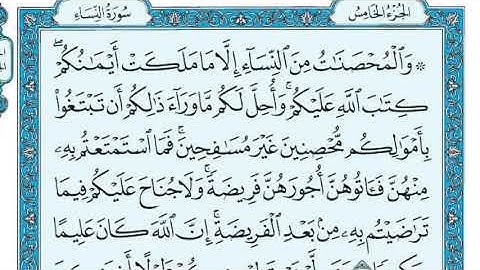 الجزء الخامس
سورة النساء
۞ وَالْمُحْصَنَاتُ مِنَ النِّسَاءِ إِلَّا مَا مَلَكَتْ أَيْمَانُكُمْ ۖ
كِتَابَ اللَّهِ عَلَيْكُمْ ۚ وَأُحِلَّ لَكُم مَّا وَرَاءَ ذَٰلِكُمْ أَن تَبْتَغُوا
بِأَمْوَالِكُم مُّحْصِنِينَ غَيْرَ مُسَافِحِينَ ۚ فَمَا اسْتَمْتَعْتُم بِهِ
مِنْهُنَّ فَآتُوهُنَّ أُجُورَهُنَّ فَرِيضَةً ۚ وَلَا جُنَاحَ عَلَيْكُمْ فِيمَا
تَرَاضَيْتُم بِهِ مِن بَعْدِ الْفَرِيضَةِ ۚ إِنَّ اللَّهَ كَانَ عَلِيمًا